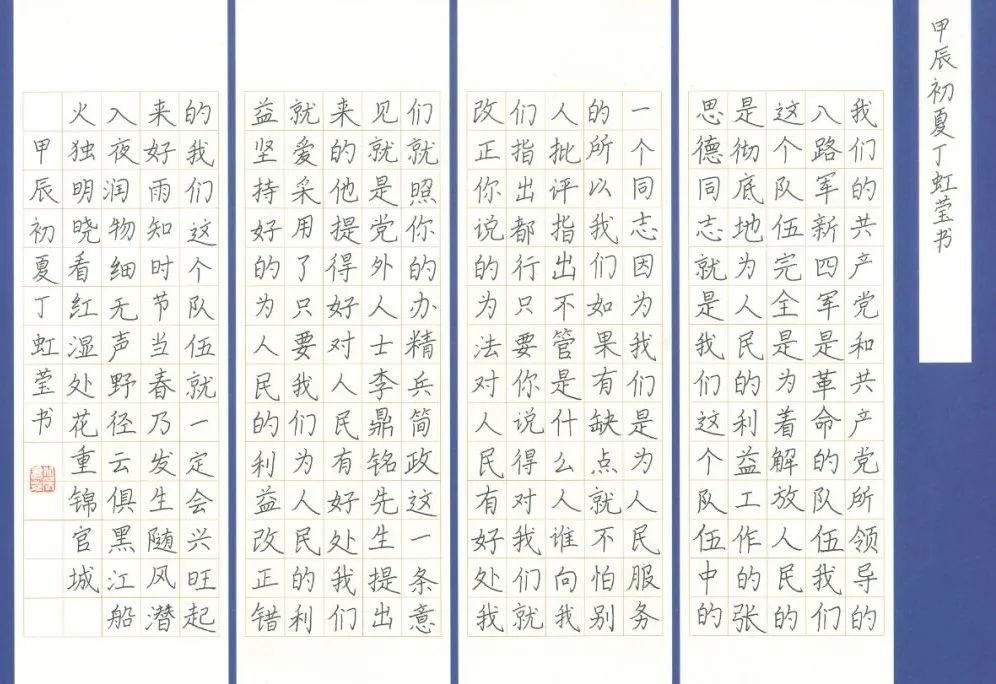 甲辰初夏丁虹莹书
我们的共产党和共产党所领导的
八路军新四军是革命的队伍我们
这个队伍完全是为着解放人民的
是彻底地为人民的利益工作的张
思德同志就是我们这个队伍中的
一个同志因为我们是为人民服务
的所以我们如果有缺点就不怕别
人批评指出不管是什么人谁向我
们指出都行只要你说得对我们就
改正你说的为法对人民有好处我
们就照你的办精兵简政这一条意
见就是党外人士李鼎铭先生提出
来的他提得好对人民有好处我们
就爱采用了只要我们为人民的利
益坚持好的为人民的利益改正错
的我们这个队伍就一定会兴旺起
来好雨知时节当春乃发生随风潜
入夜润物细无声野径云俱黑江船
火独明晓看红湿处花重锦官城
甲辰初夏丁虹莹书